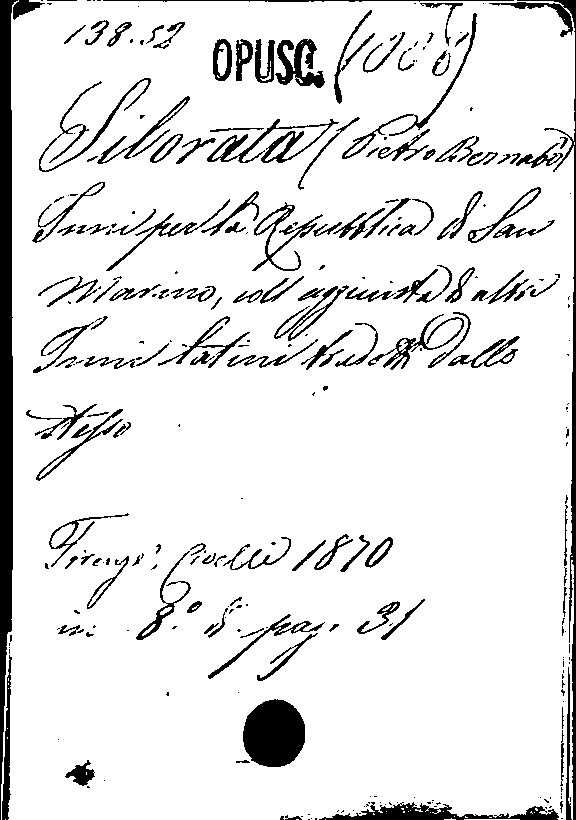 138.52 OPUSC. (1008)
Silorata (Pietro Bernabò)
Inni per la Repubblica di San
Marino, coll'aggiunta di altri
Inni latini tradotti dallo
stesso
Firenze, Civelli 1870
in 8.° di pag. 31